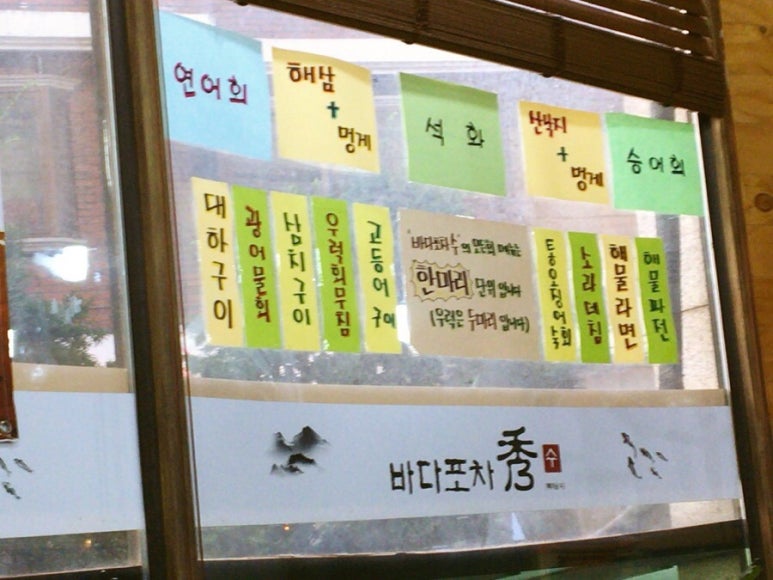 연어회
해삼
+
멍게
석화
산낙지
+
멍게
숭어회
대하구이
광어물회
삼치구이
우럭회무침
고등어구이
"바다포차 수"의 모든회 메뉴는
한마리 단위 입니다
(우럭은 두마리 입니다)
통오징어숙회
노라데침
해물라면
해물파전
바다포차 秀 수